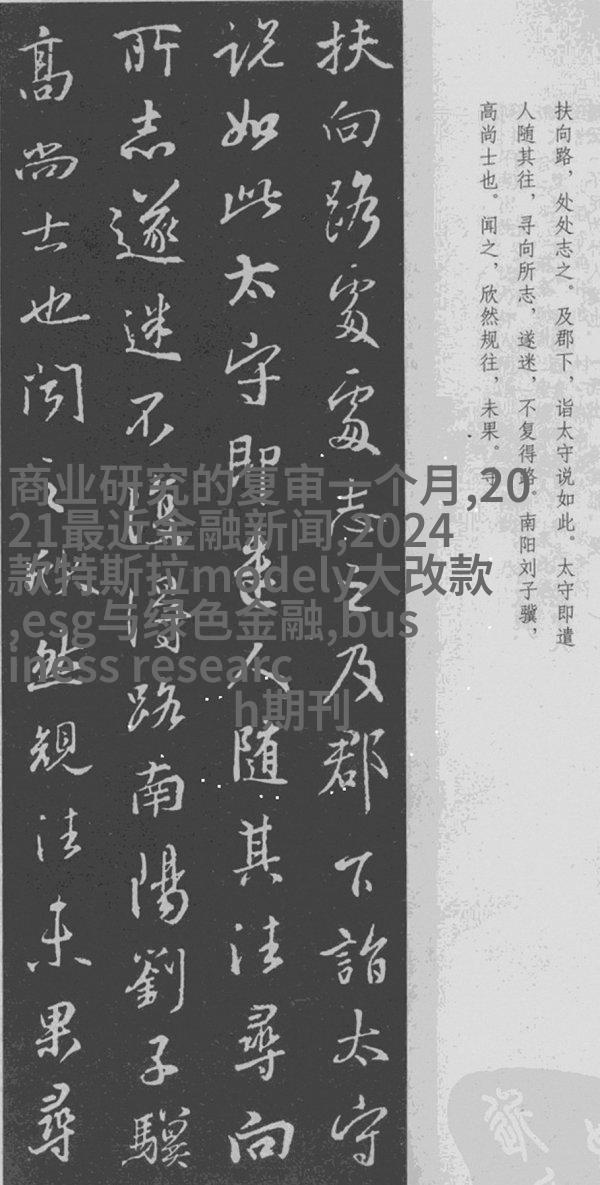 扶向路，处处志之。及郡下，诣太守说如此。太守即遣
人随其往，寻向所志，遂迷，不复得路。南阳刘子骥，
高尚士也。闻之，欣然规往，未果。寻
扶向路處處志之及郡下詣太守
説如此太守即遣人随其往尋向
所志遂迷不復得路南陽劉子驥
高尚士也聞之欣然規往未果尋
商业研究的复审一个月,20
21最近金融新闻,2024
款特斯拉modely大改款
,esg与绿色金融,bus
iness researc
h期刊